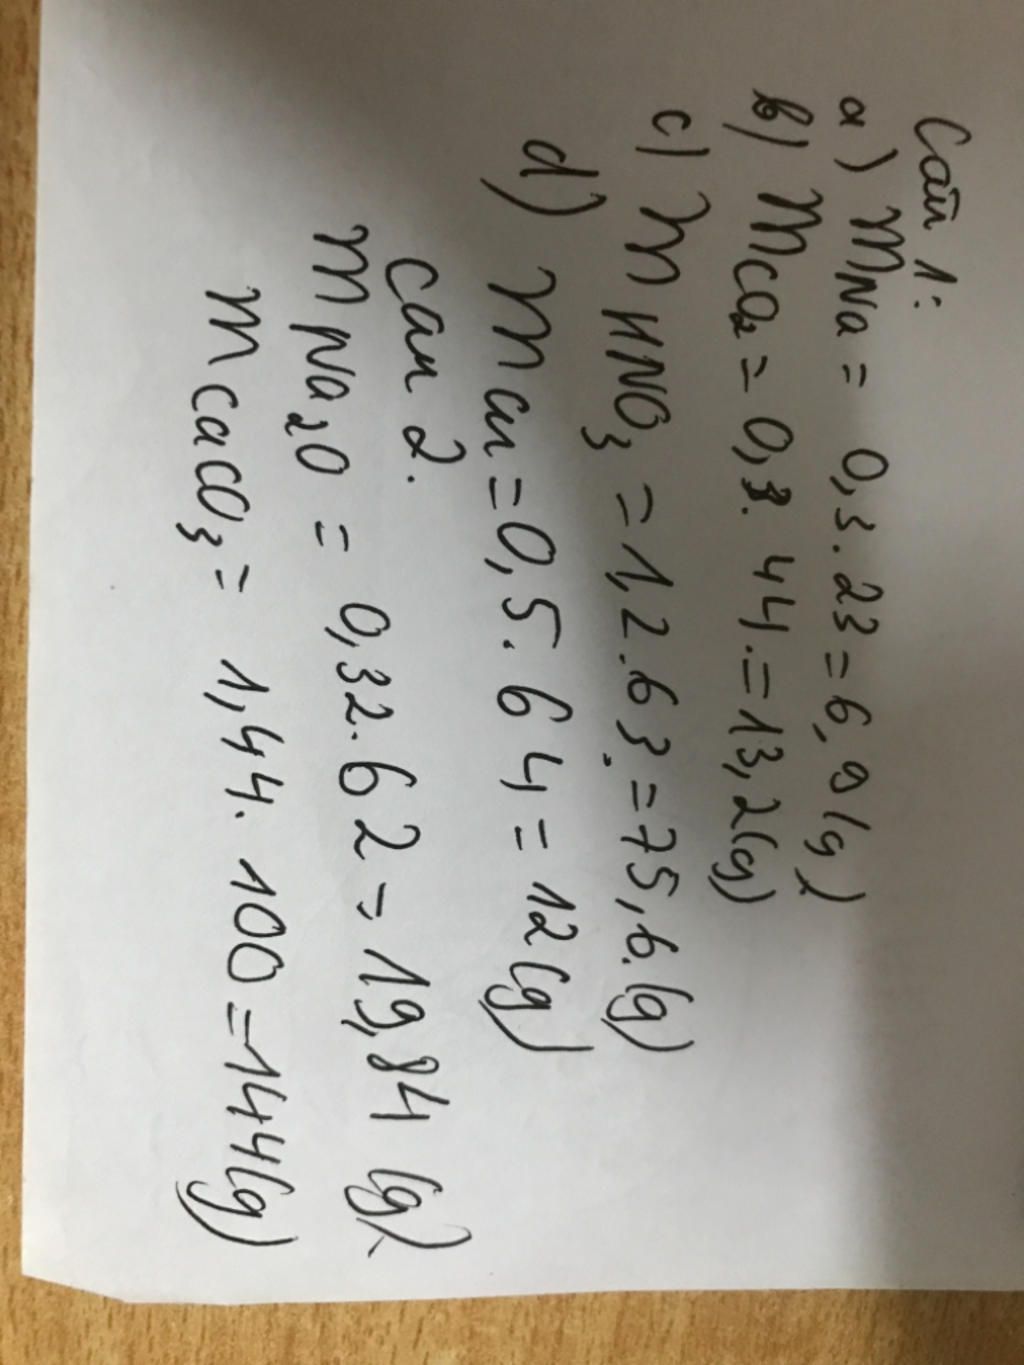 Câu 1:
a) mNa = 0,3.23 = 6,9 (g)
b) mCO₂ = 0,3. 44. = 13,2(g)
c) m HNO₃ = 1,2.63. = 75,6.(g)
d) m Cu = 0,5. 64 = 12(g)
Câu 2.
m Na₂O = 0,32. 62 = 19,84 (g).
m CaCO₃ = 1,44. 100 = 144(g)